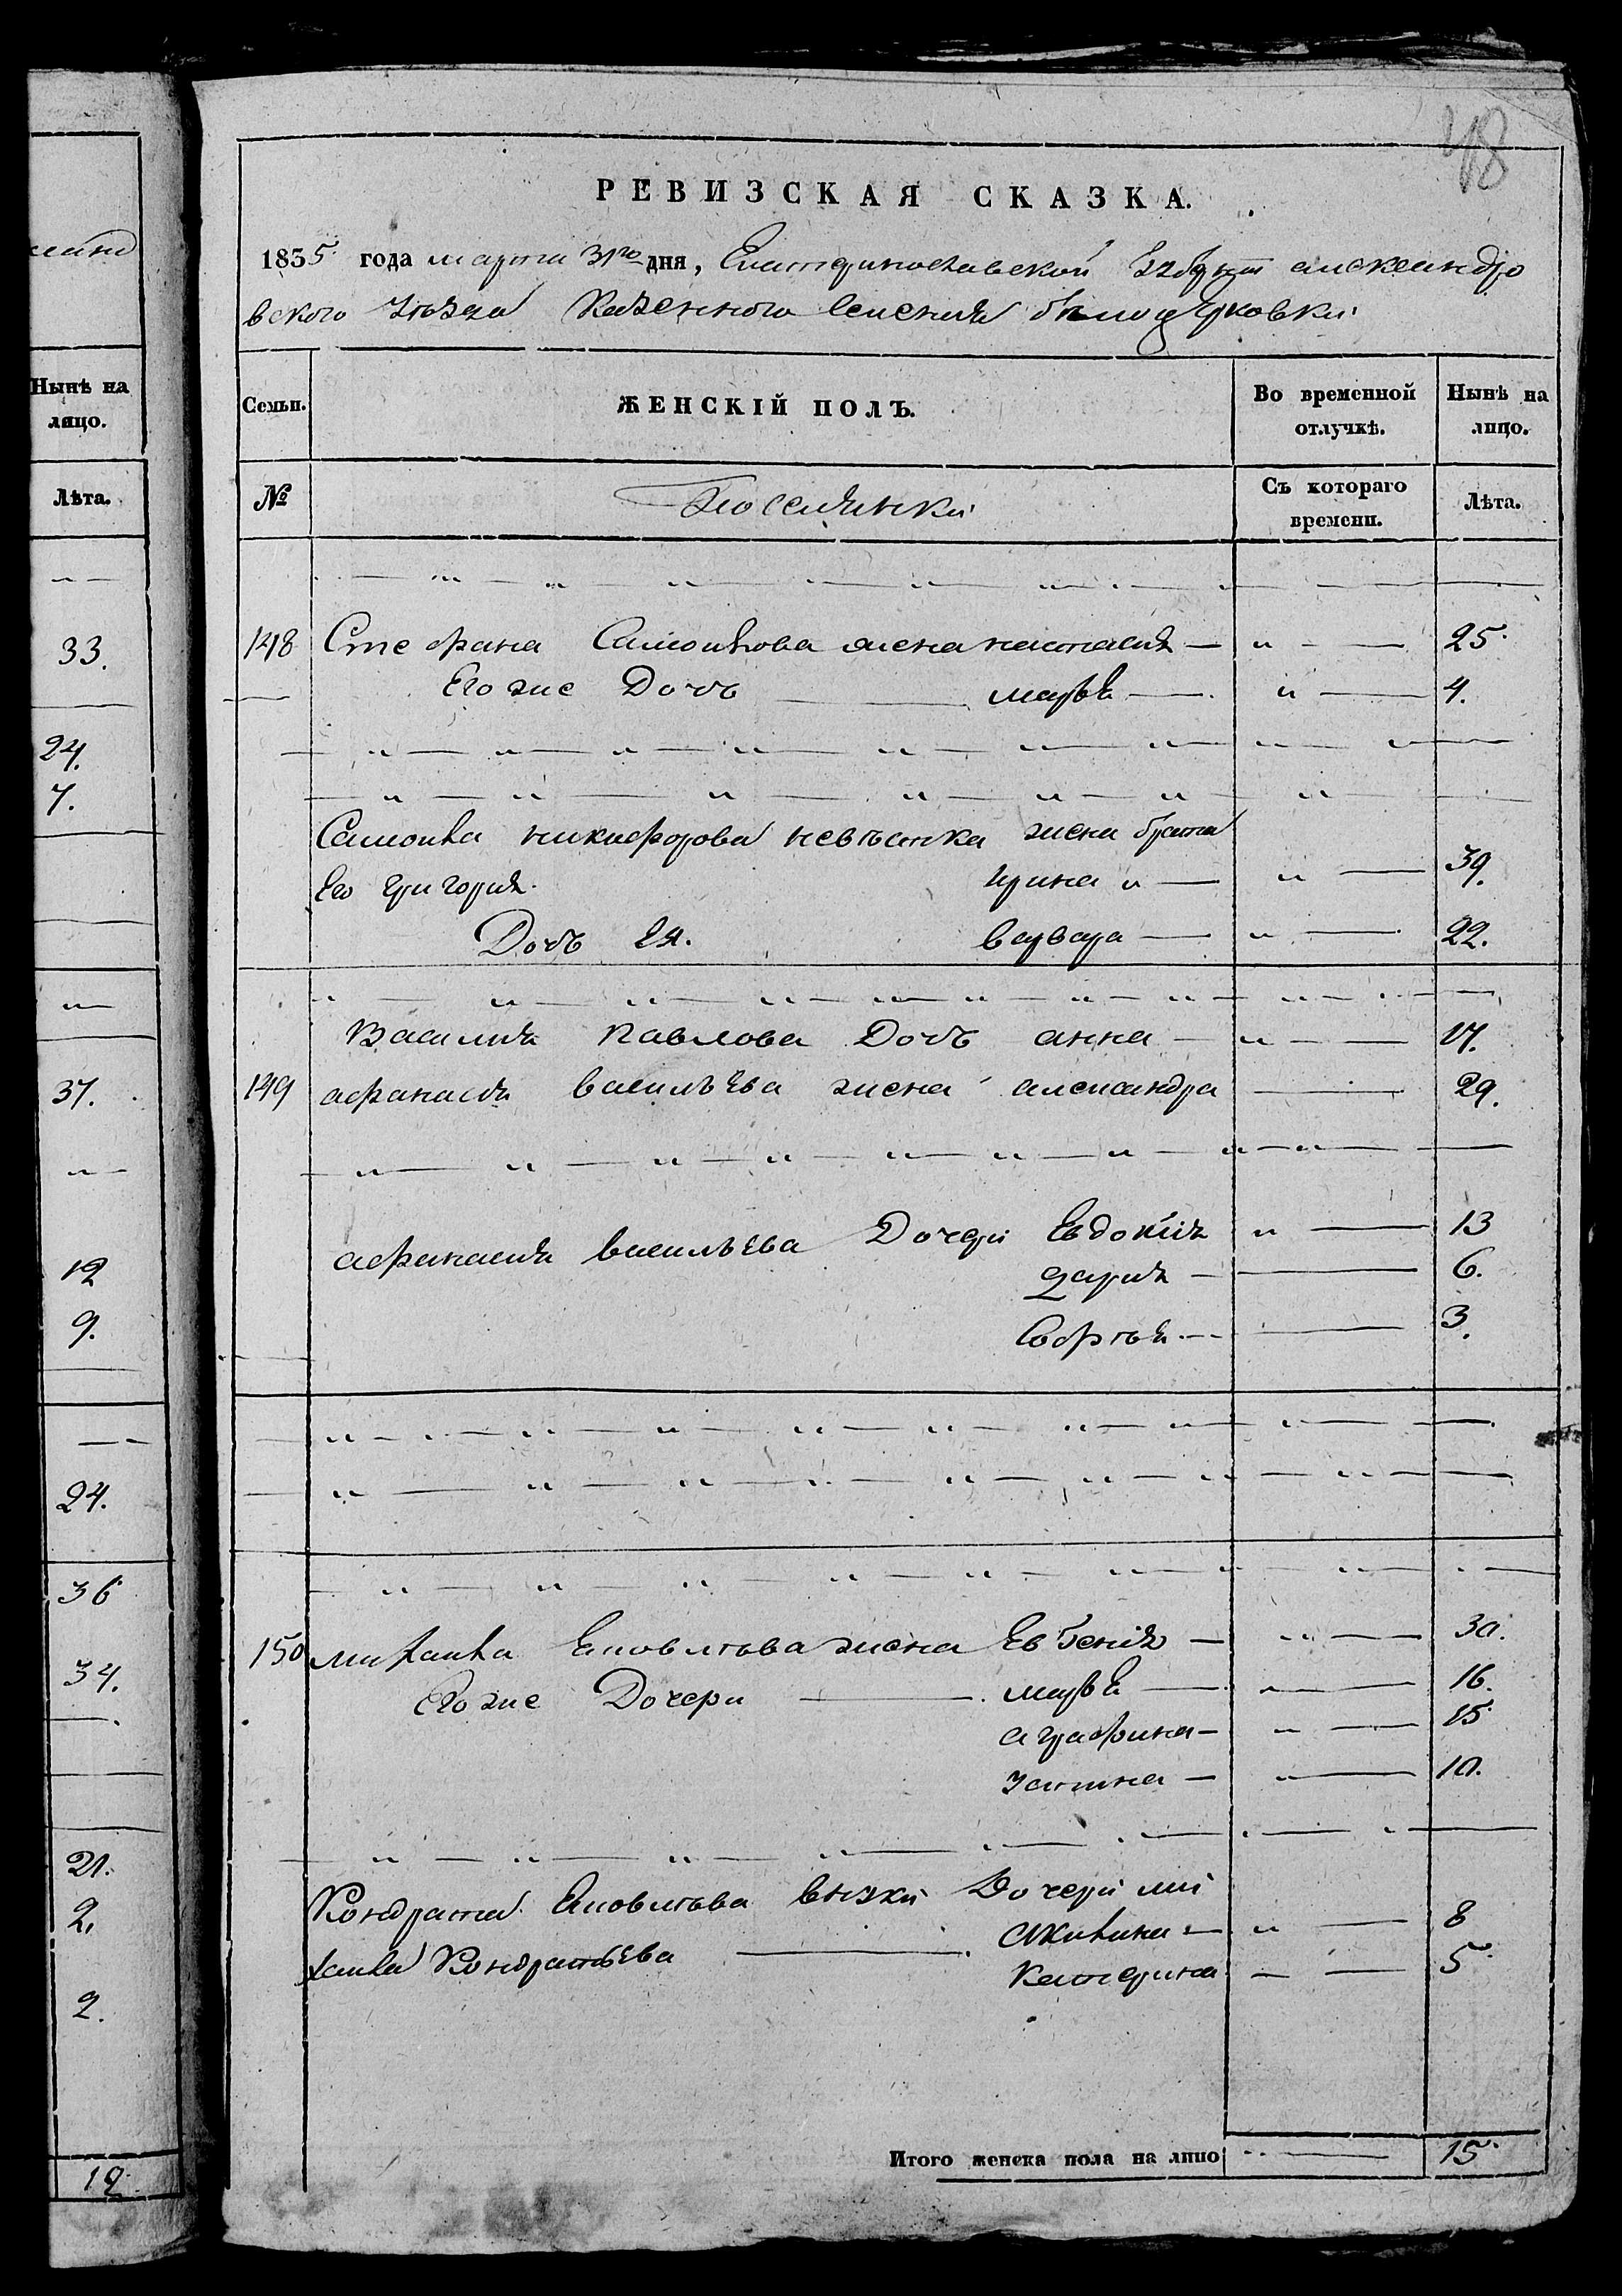 48
РЕВИЗСКАЯ СКАЗКА.
1835 года марта 31го дня, Екатеринославской Губерніи александро
вского уѣзда Казенного Селенія бѣлоцерковки
Семьи. ЖЕНСКІЙ ПОЛЪ. Во временной отлучкѣ. Нынѣ на лицо.
№ Поселянки Съ котораго времени. Лѣта.
148 Стефана Самойлова жена настасія 25
Его же Дочь марфа 4.
Самойла никифорова невѣстка жена брата
Его григорія ирина 39.
Дочь Ея. варвара 22.
Василия павлова Дочь анна 17.
149 афанасія васильева жена александра 29.
афанасия васильева Дочери Евдокія 13
дария 6.
Софья 3.
150 михайла Яковлева жена Евгенія 30.
Его же Дочери марфа 16.
аграфина 15
устина 10.
Кондрата Яковлева внуки Дочери ми
хайла Кондратьева акилина 8
Катерина 5
Итого женска пола на лицо 15
Нынѣ на лицо.
Лѣта.
33.
24.
7.
37.
12
9.
24.
36
34.
21.
2.
2.
12.